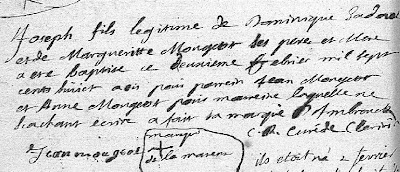 Joseph fils legitime de Dominique
et de Margueritte Mongeot ses pere et Mere
a ete Baptise ce deuxieme febvrier mil sept
cents huict a eü pour parrein Jean Mongeot
et Anne Mongeot pour marreine laquelle ne
scachant ecrire a fait sa marque
Jean mongeot marque Curé de
de la mareine ils etoit né 2 fevrier